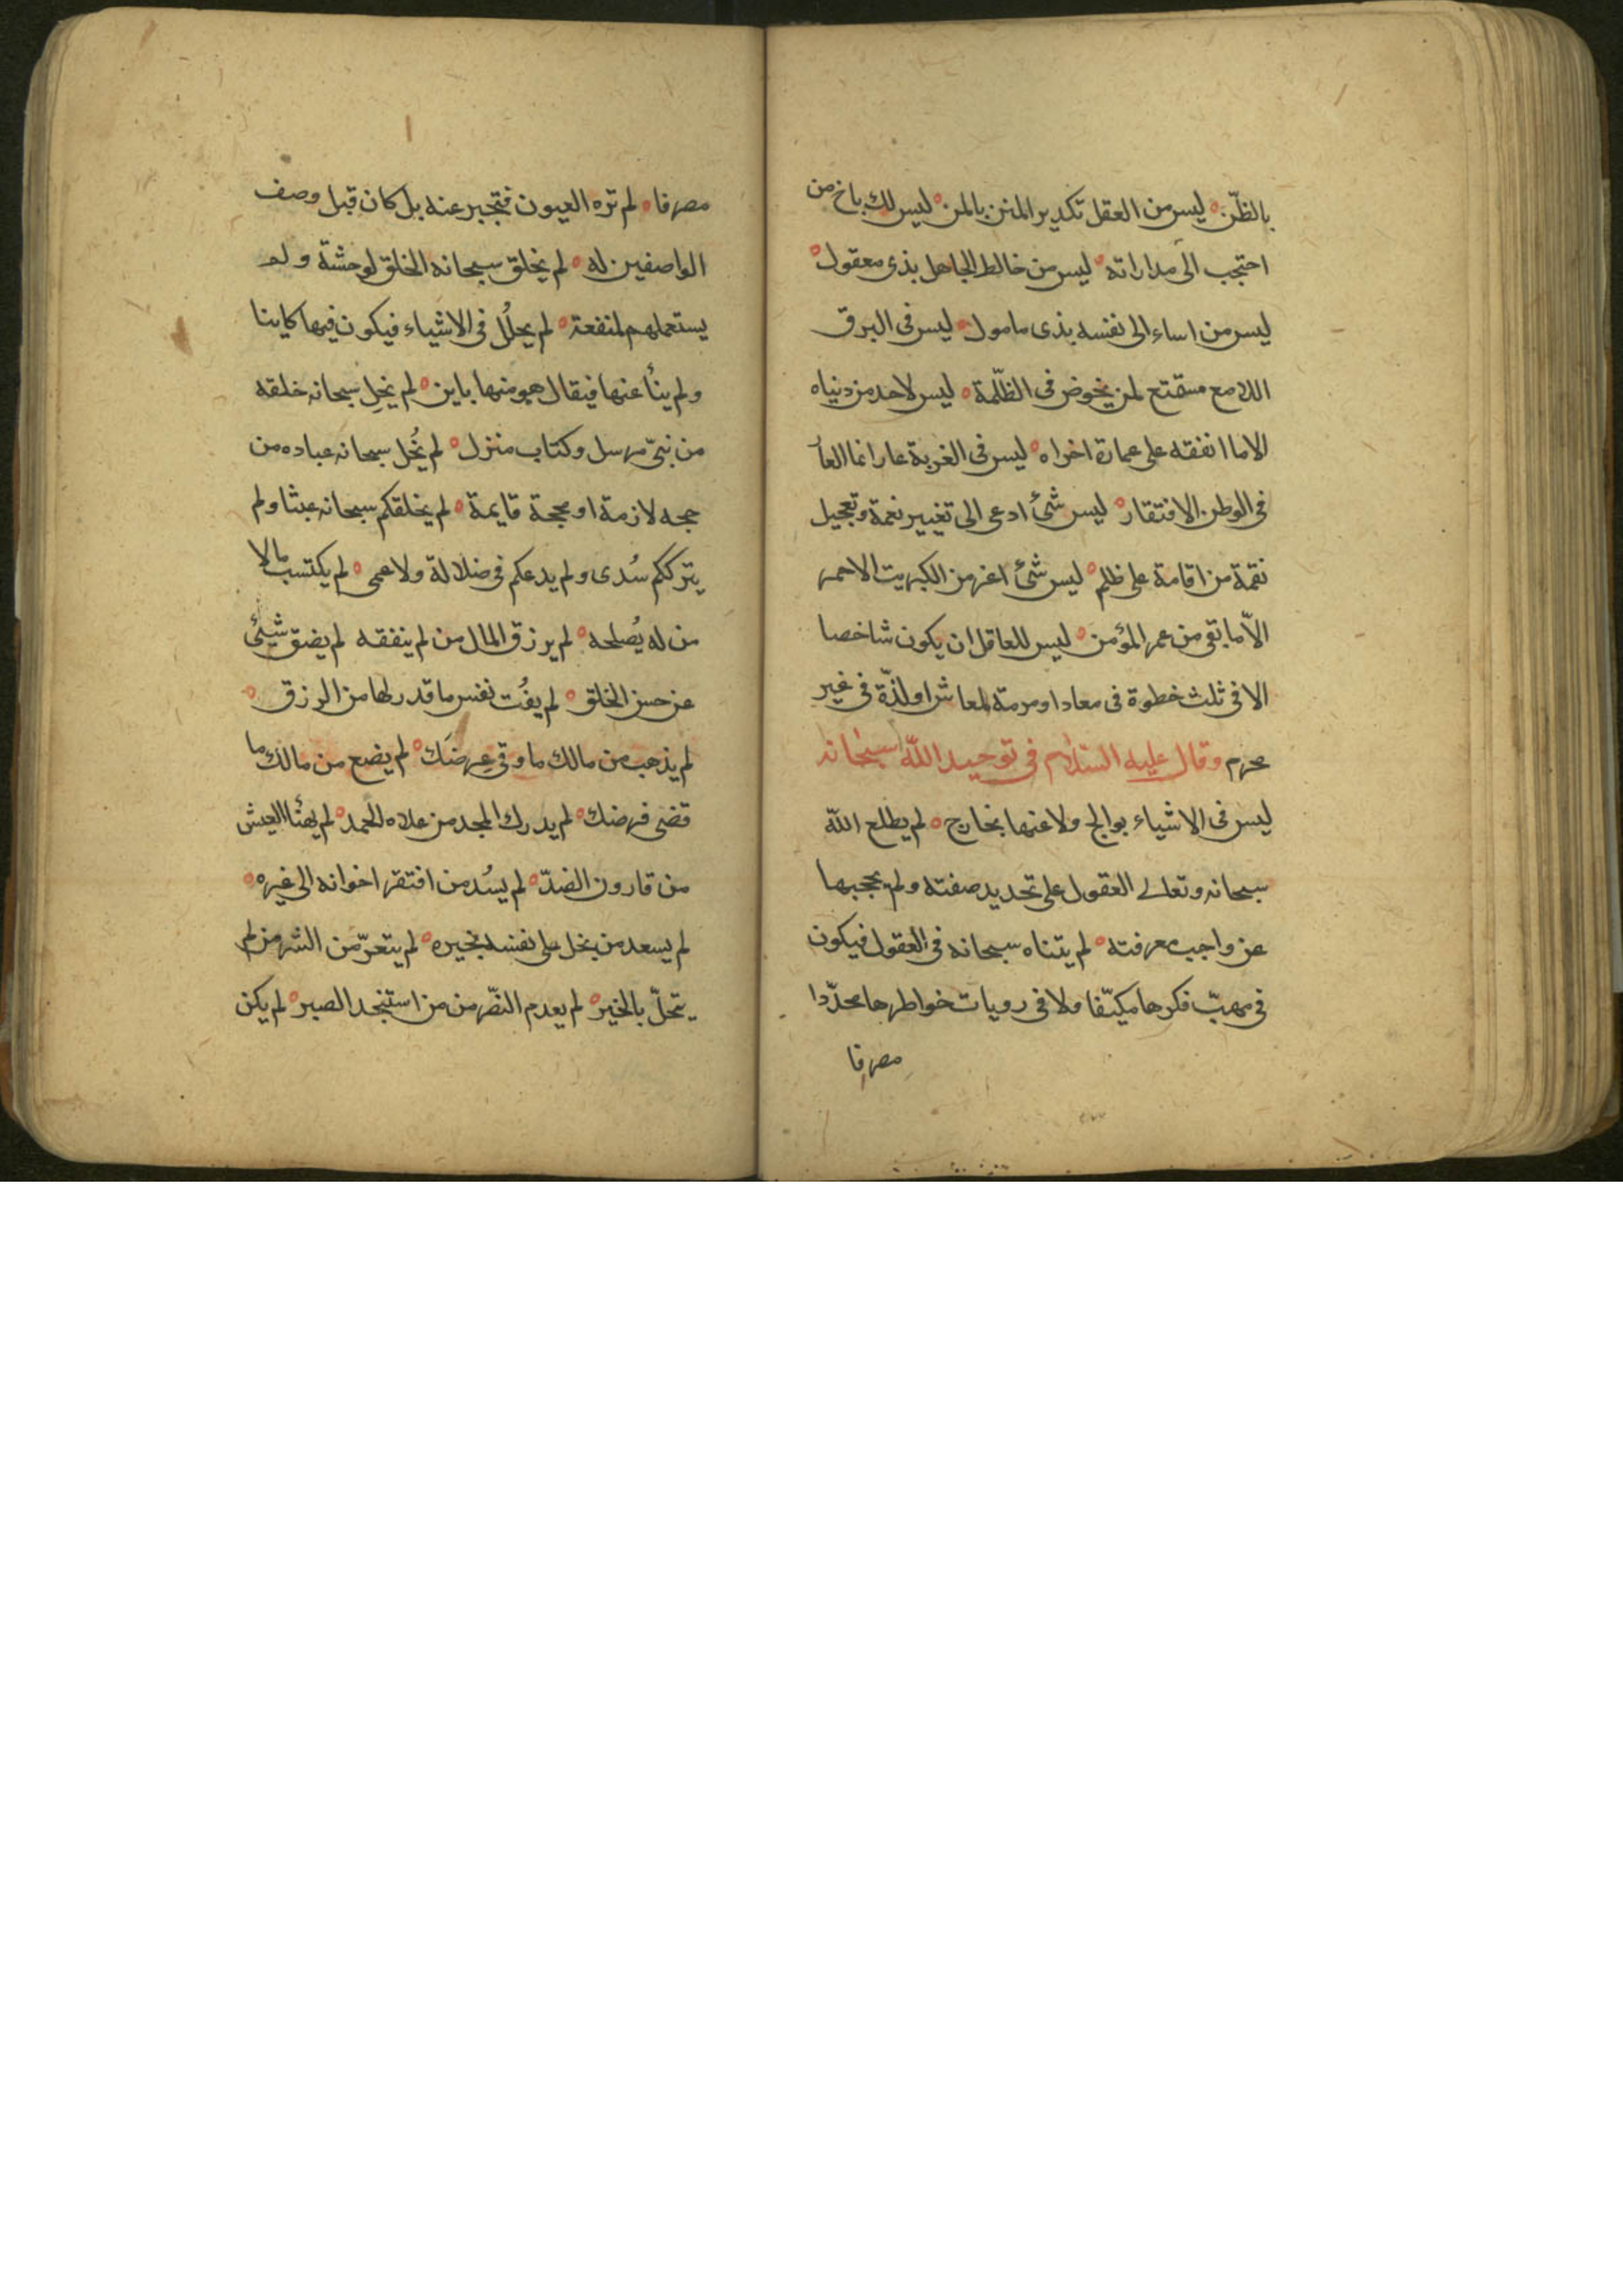 بالظّن ليس من العقل تكدير المنن بالمن ليس لك باخ من
احتجب الى مداراته ليس من خالط الجاهل بذى معقول
ليس من اساء الى نفسه بذى مامول ليس فى البرق
اللامع مستمتع لمن يخوض فى الظّلمة ليس لاحد من دنياه
الا ما انفقه على عمارة اخراه ليس فى الغربة عار انما العا
فى الوطن الافتقار ليس شئ ادعى الى تغيير نعمة وتعجيل
نقمة من اقامة على ظلم ليس شئ اعز من الكبريت الاحمر
الّا ما بقى من عمر المؤمن ليس للعاقل ان يكون شاخصا
الا فى ثلث خطوة فى معاد او مرمة لمعاش او لذّة فى غير
محرم وقال عليه السّلام فى توحيد اللّه سبحانه
ليس فى الاشياء بوالج ولا عنها بخارج لم يطلع اللّه
سبحانه وتعالى العقول على تحديد صفته ولم يحجبها
عن واجب معرفته لم يتناه سبحانه فى العقول فيكون
فى مهبّ فكرها مكيّفا ولا فى رويات خواطرها محدّدا
مصرفا
مصرفا لم تره العيون فتخبر عنه بل كان قبل وصف
الواصفين له لم يخلق سبحانه الخلق لوحشة ولم
يستعملهم لمنفعة لم يحلُل فى الاشياء فيكون فيها كاينا
ولم ينأ عنها فيقال هو منها باين لم يخلِ سبحانه خلقه
من نبىّ مرسل وكتاب منزل لم يُخل سبحانه عباده من
حجه لازمة او محجة قايمة لم يخلقكم سبحانه عبثا ولم
يترككم سُدى ولم يدعكم فى ضلالة ولا عمى لم يكتسب مالا
من له يُصلحه لم يرزق المال من لم ينفقه لم يضق شيئ
عن حسن الخلق لم يفُت نفس ما قدر لها من الرزق
لم يذهب من مالك ما وقى عِرضَك لم يضع من مالك ما
قضى فرضك لم يدرك المجد من علاه الحمد لم يهنأ العيش
من قارون الضدّ لم يسُد من افتقر اخوانه الى غيره
لم يسعد من بخل على نفسه بخيره لم يتعرّ من الشر من لم
يتحلّ بالخير لم يعدم النصّر من من استنجد الصبر لم يكن